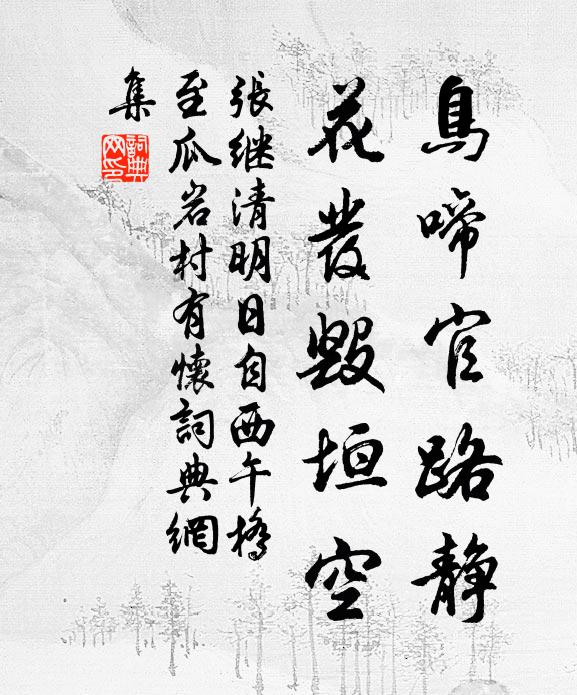 鳥啼官路静
花發毀垣空
張继清明日自西午橋
至瓜岩村有懷詞典網
集
詞典
网印